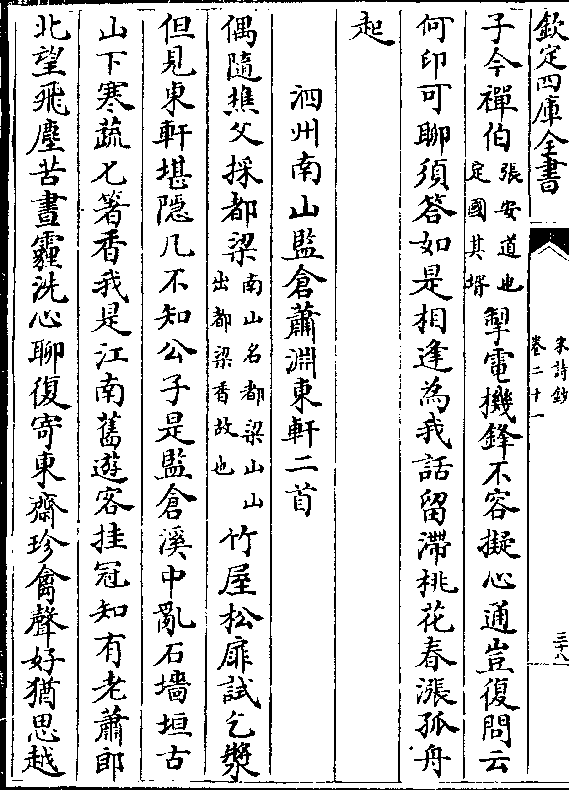 欽定四庫全書
宋詩鈔
卷二十一
三十八
子今禪伯張安道也定國其壻掣電機鋒不容擬心通豈復問云
何印可聊須答如是相逢為我話留滯桃花春漲孤舟
起
泗州南山監倉蕭淵東軒二首
偶隨樵父採都梁南山名都梁山山出都梁香故也竹屋松扉試乞漿
但見東軒堪隠几不知公子是監倉溪中亂石墻垣古
山下寒蔬匕箸香我是江南舊遊客挂冠知有老蕭郎
北望飛塵苦晝霾洗心聊復寄東齋珍禽聲好猶思越